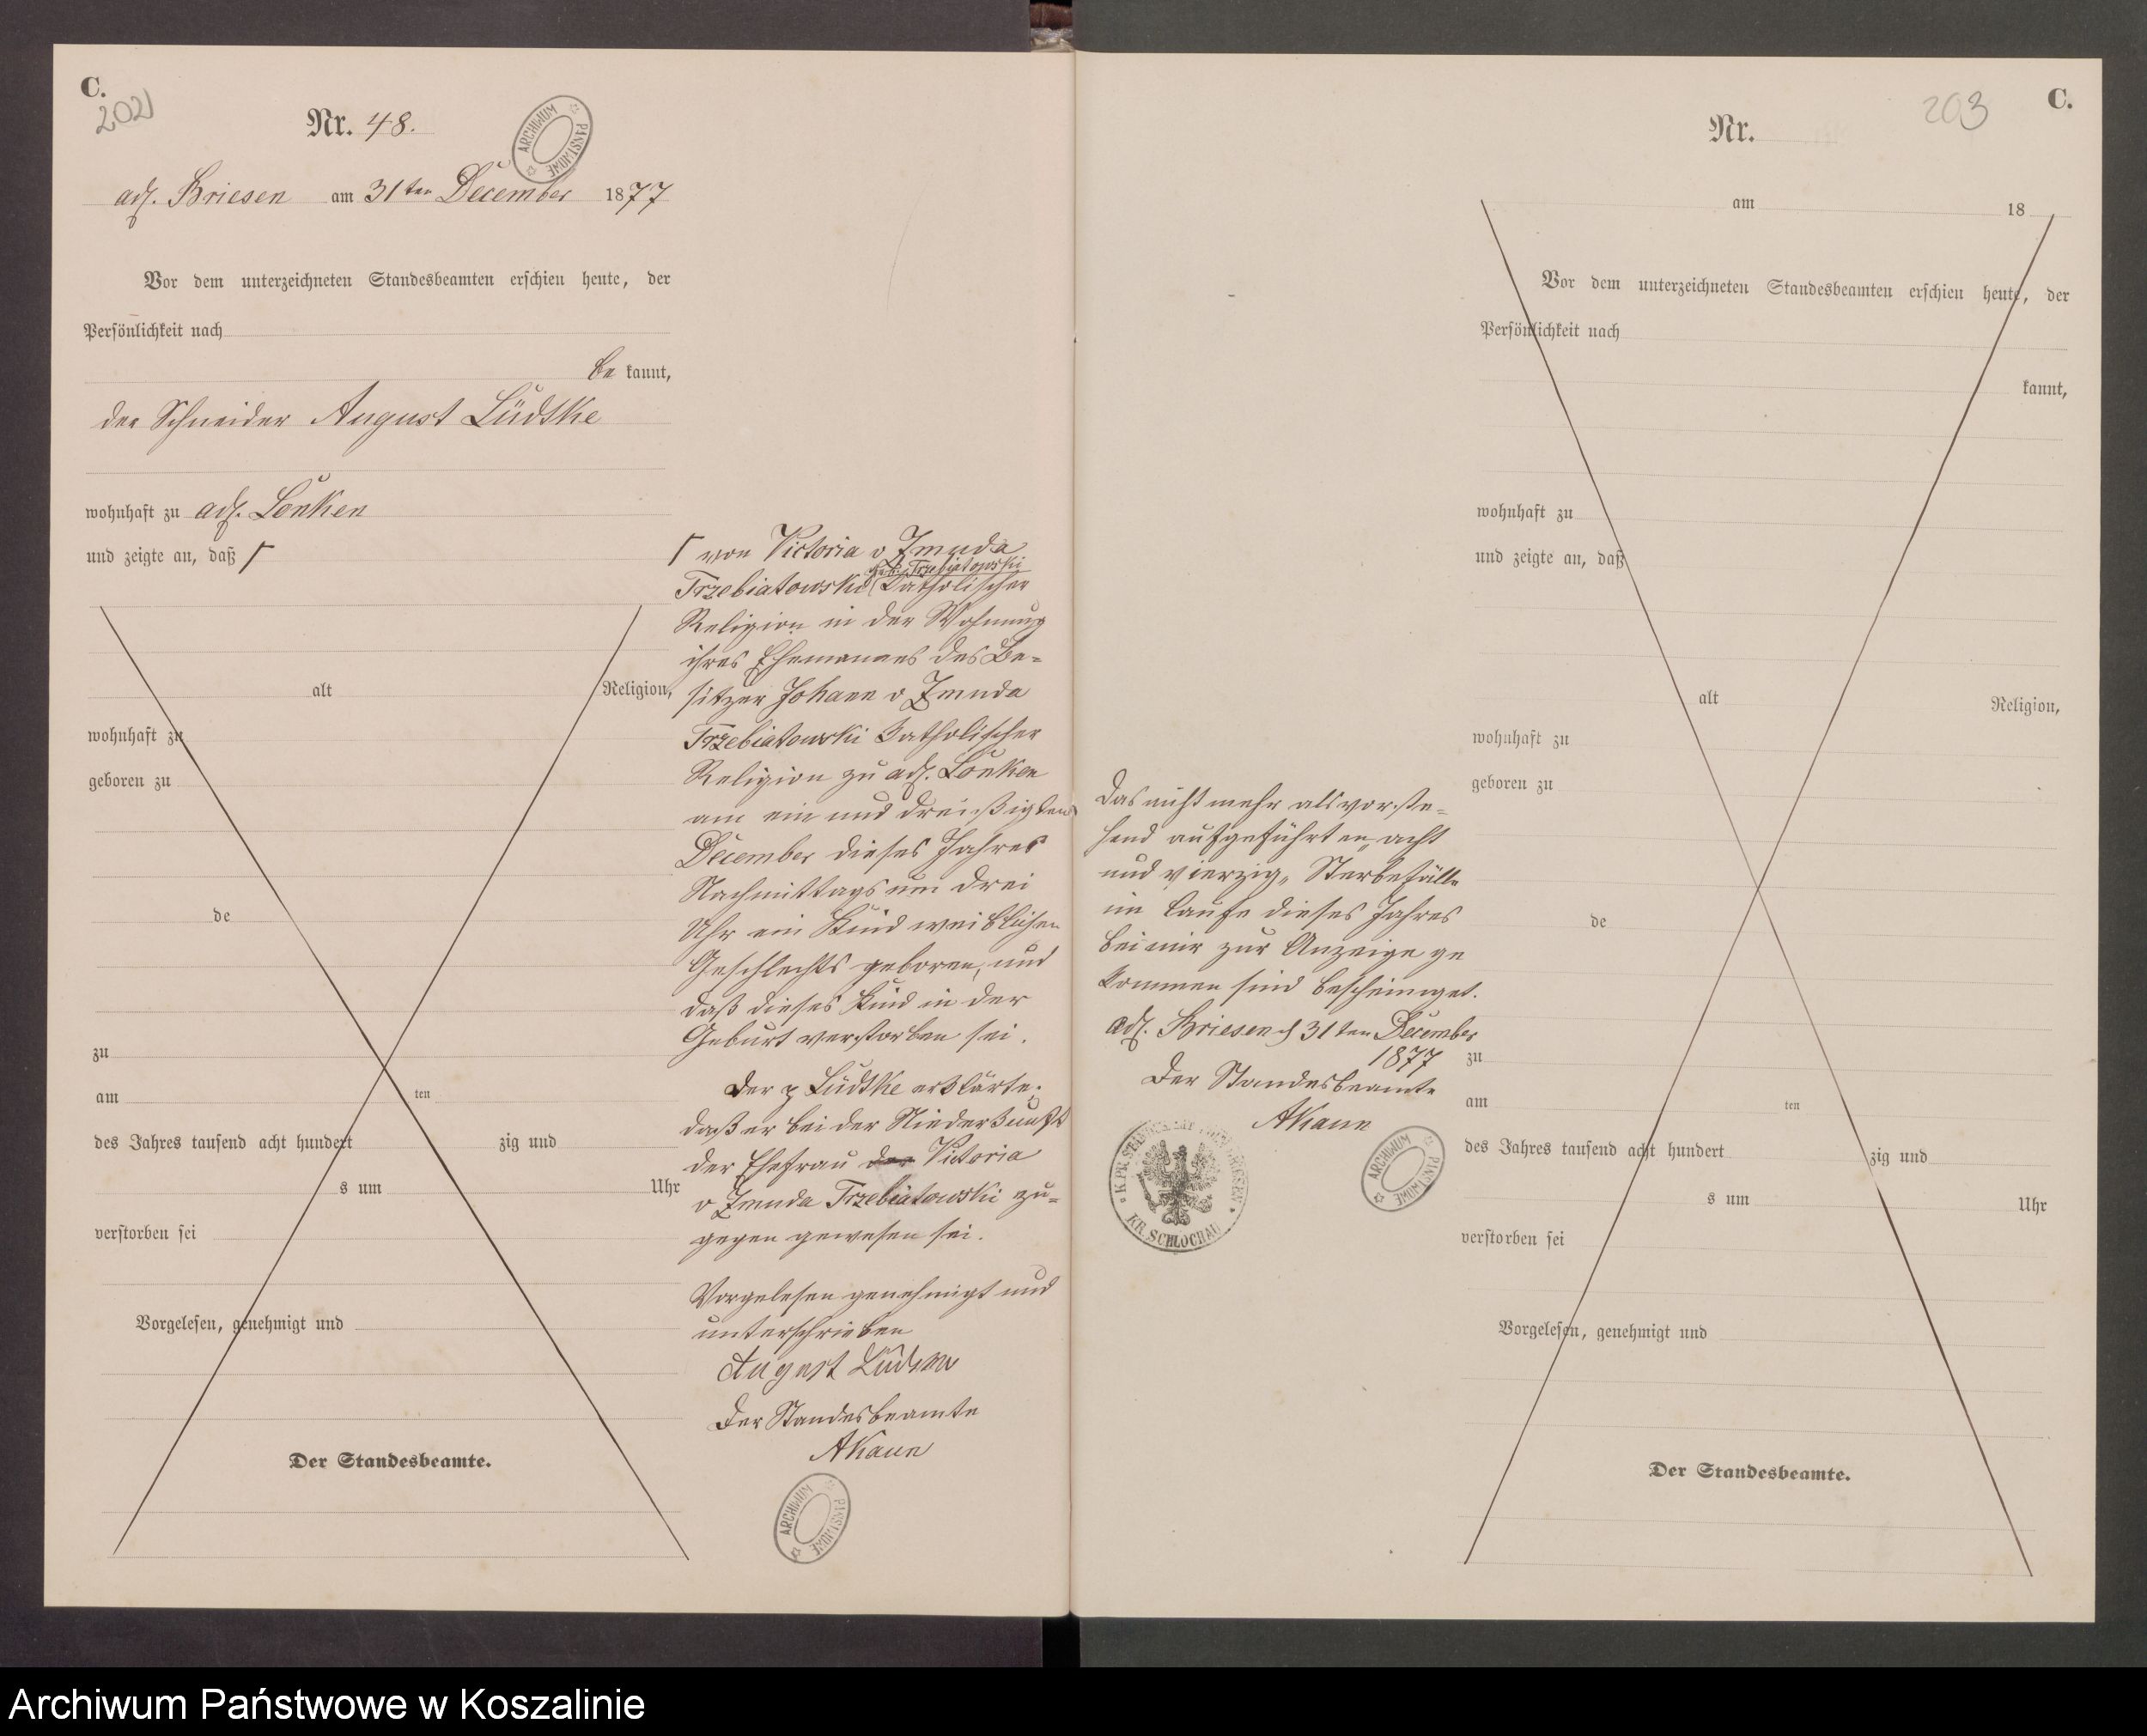 C.
202
Nr. 48.
ARCHIWUM PAŃSTWOWE
adl. Briesen am 31ten December 1877
Vor dem unterzeichneten Standesbeamten erschien heute, der
Persönlichkeit nach
be kannt,
der Schneider August Lüdtke
wohnhaft zu adl. Lonken
und zeigte an, daß Γ
alt Religion,
wohnhaft zu
geboren zu
de
zu
am ten
des Jahres tausend acht hundert zig und
s um Uhr
verstorben sei
Vorgelesen, genehmigt und
Der Standesbeamte.
Γ von Victoria v Zmuda
geb. Trzebiatowski
Trzebiatowski Katholischer
Religion in der Wohnung
ihres Ehemannes des Be=
sitzer Johann v Zmuda
Trzebiatowski Katholischer
Religion zu adl. Lonken
am ein und dreißigten
December dieses Jahres
Nachmittags um drei
Uhr ein Kind weiblichen
Geschlechts geboren, und
daß dieses Kind in der
Geburt verstorben sei.
Der p Lüdtke erklärte,
daß er bei der Niederkunft
der Ehefrau der Victoria
v Zmuda Trzebiatowski zu=
gegen gewesen sei.
Vorgelesen genehmigt und
unterschrieben
August Lüdtke
Der Standesbeamte
AKaun
ARCHIWUM PAŃSTWOWE
C.
203
Nr.
am 18
Vor dem unterzeichneten Standesbeamten erschien heute, der
Persönlichkeit nach
kannt,
wohnhaft zu
und zeigte an, daß
alt Religion,
wohnhaft zu
geboren zu
de
zu
am ten
des Jahres tausend acht hundert zig und
s um Uhr
verstorben sei
Vorgelesen, genehmigt und
Der Standesbeamte.
Das nicht mehr als vorste=
hend aufgeführten „acht
und vierzig„ Sterbefälle
im Laufe dieses Jahres
bei mir zur Anzeige ge
kommen sind bescheiniget.
adl. Briesen d 31ten December
1877
Der Standesbeamte
AKaun
KR. SCHLOCHAU
ARCHIWUM PAŃSTWOWE
Archiwum Państwowe w Koszalinie